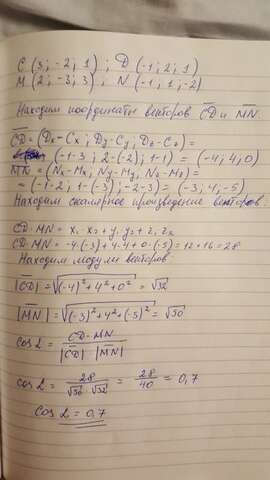 C (3; -2; 1) ; D (-1; 2; 1)
M (2; -3; 3) ; N (-1; 1; -2)
Находим координаты векторов CD и MN
CD = (Dx - Cx; Dy - Cy; Dz - Cz) =
= (-1-3; 2-(-2); 1-1) = (-4; 4; 0)
MN = (Nx - Mx; Ny - My; Nz - Mz) =
= (-1-2; 1-(-3); -2-3) = (-3; 4; -5)
Находим скалярное произведение векторов:
CD · MN = x₁ x₂ + y₁ y₂ + z₁ z₂
CD · MN = -4·(-3) + 4·4 + 0·(-5) = 12 + 16 = 28
Находим модули векторов
|CD| = √(-4)² + 4² + 0² = √32
|MN| = √(-3)² + 4² + (-5)² = √50
Cos α = CD · MN / |CD| · |MN|
Cos α = 28 / √32 · √50 = 28 / 40 = 0,7
Cos α = 0,7